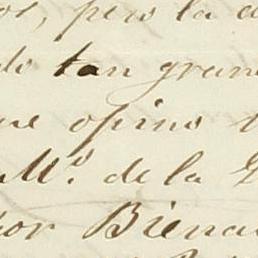 os, pero la
do tan gran
ue opino
M.º de la
or Biena